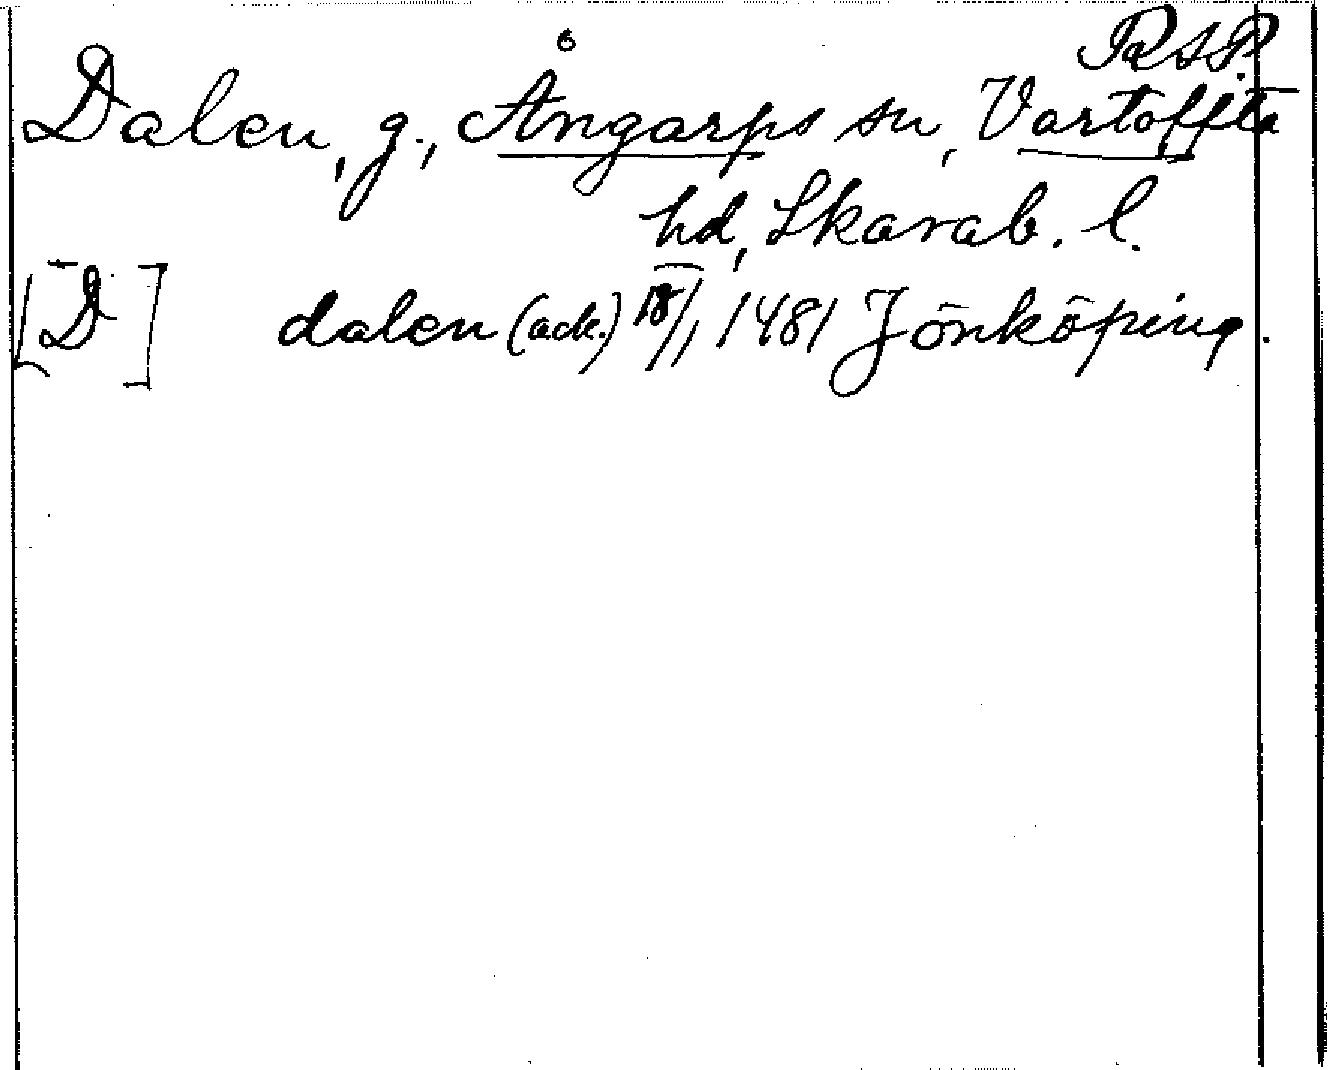 RAP.
Dalen, g., Ångarps sn, Vartofta
hd, Skarab. l.
[D] dalen (ack.) 18/1 1481 Jönköping.